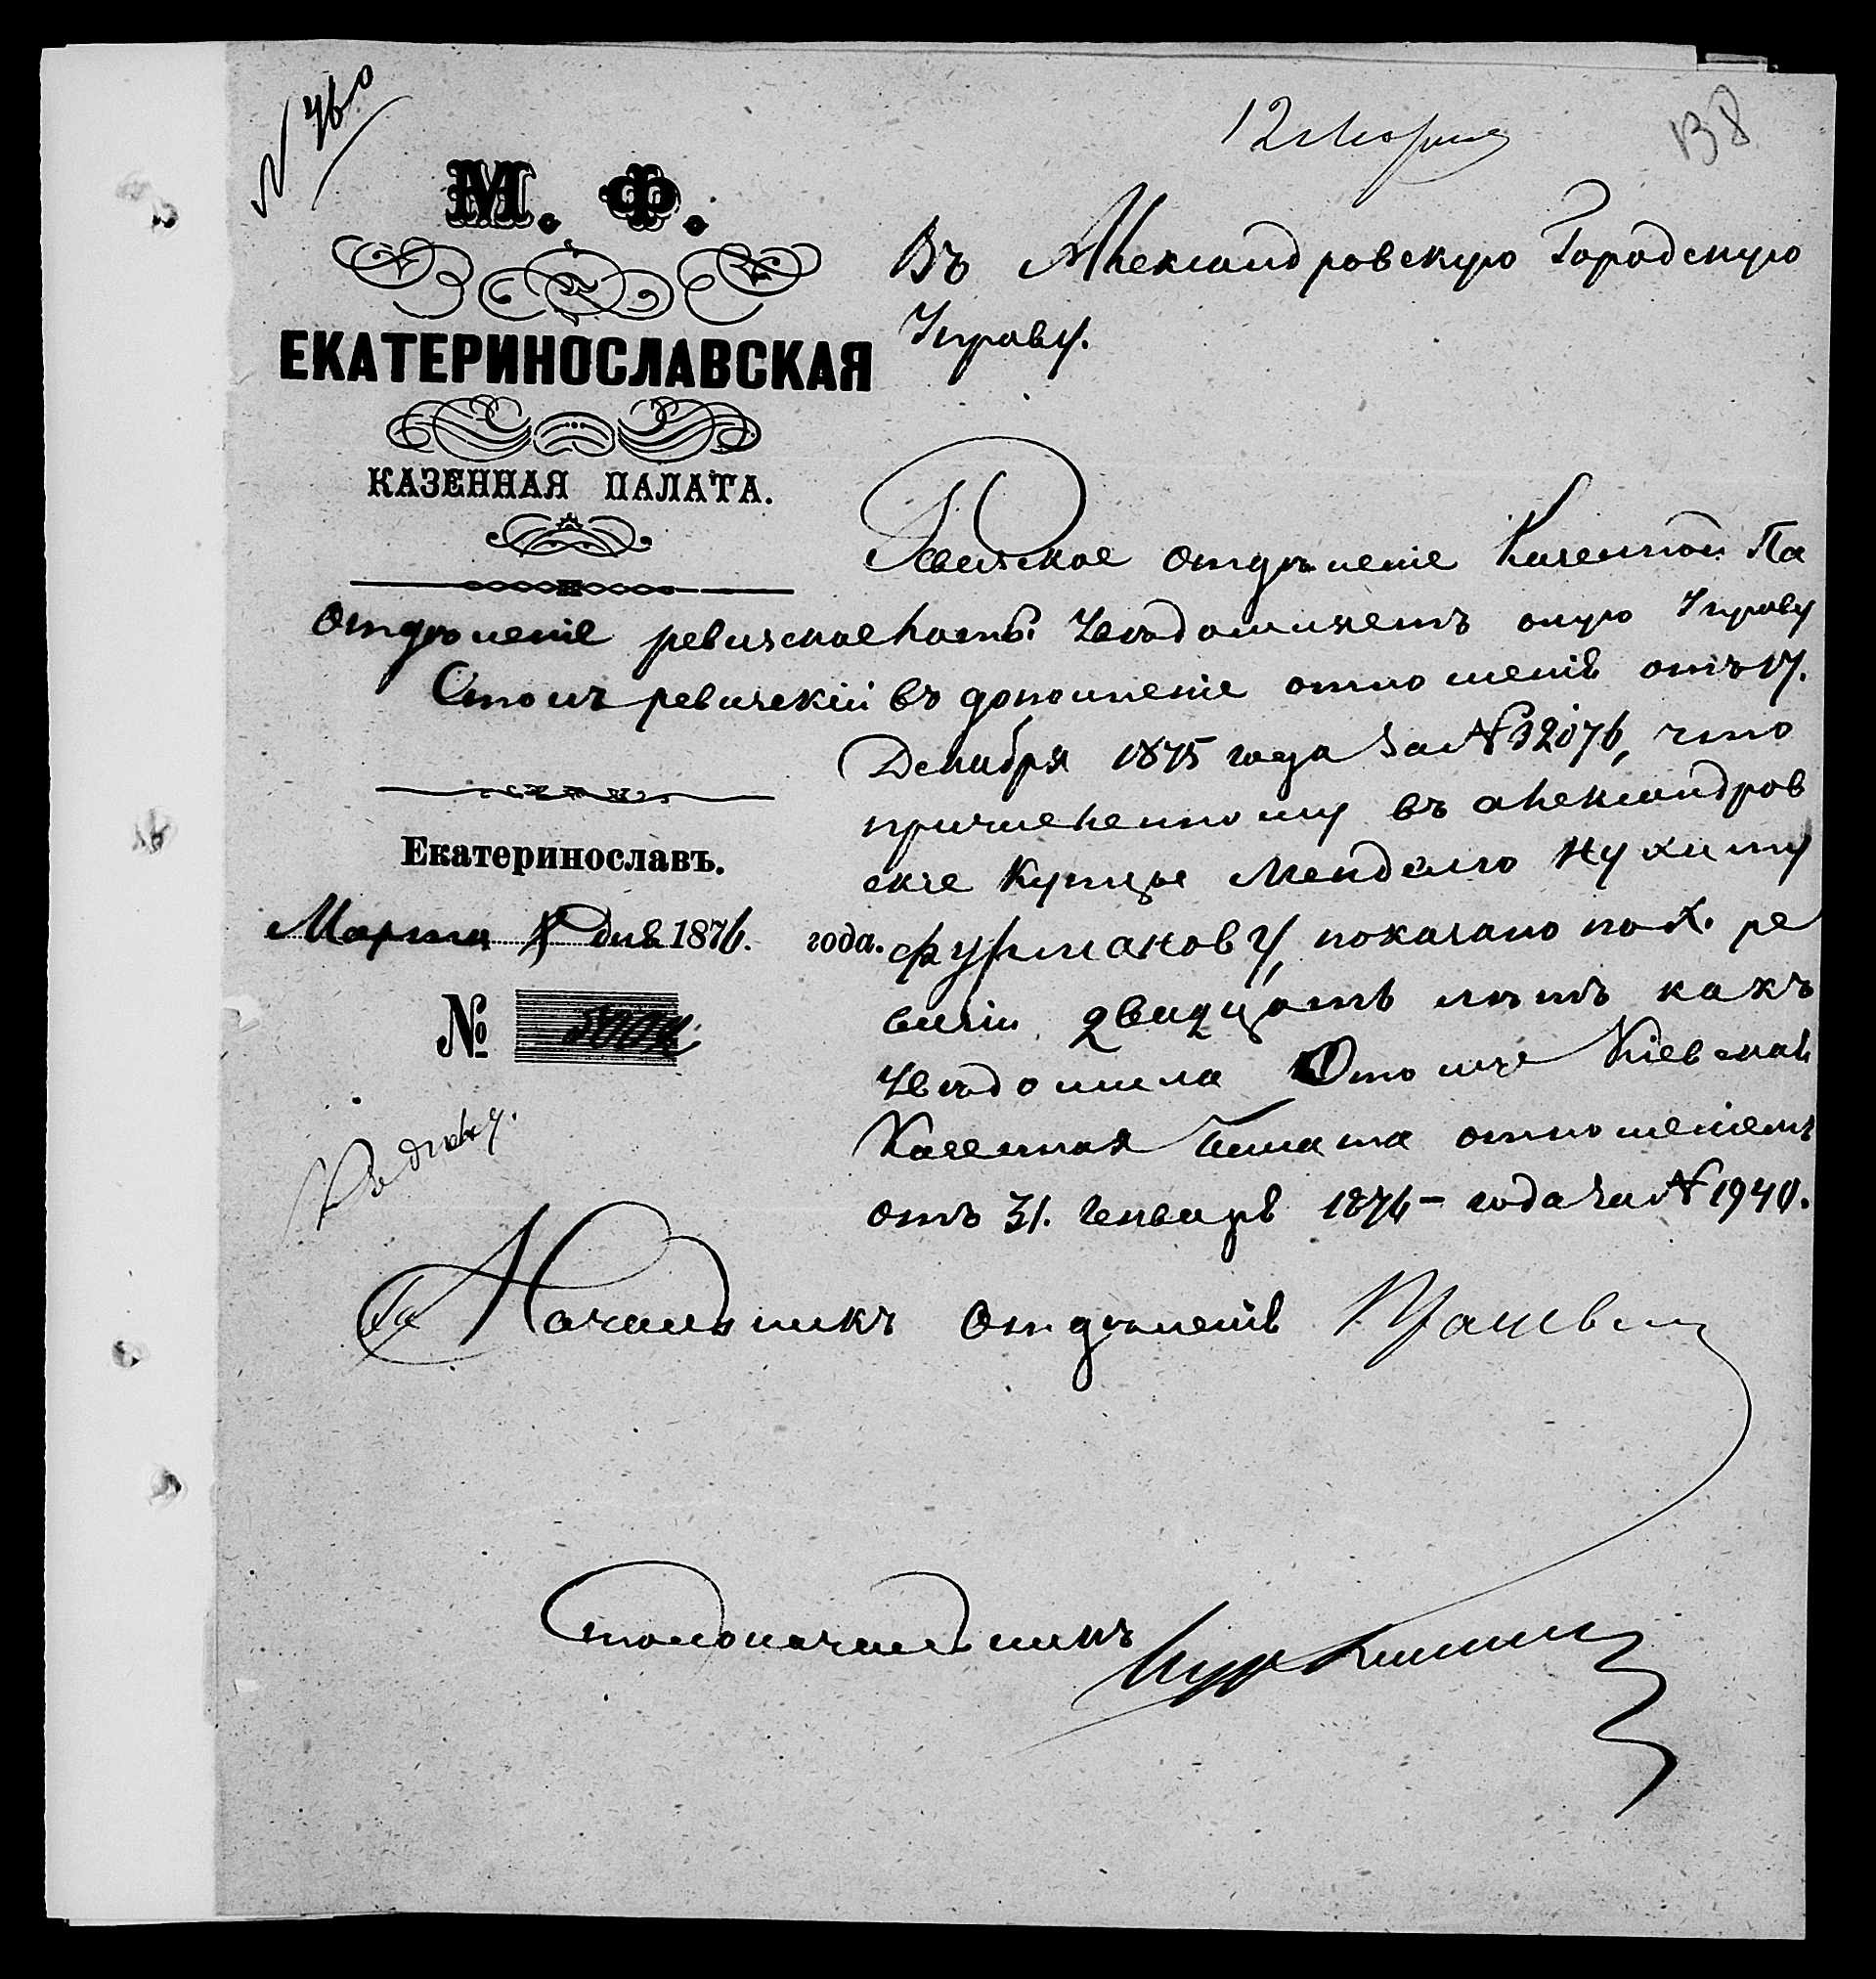 N 460
12 Марта
138
М. Ф.
ЕКАТЕРИНОСЛАВСКАЯ
КАЗЕННАЯ ПАЛАТА.
Отдѣленіе ревизское
Столъ ревизскій
Екатеринославъ.
Марта дня 1876. года.
№
Къ дѣлу.
Въ Александровскую Городскую
Управу.
Ревизское отдѣленіе Казенной Па
латы увѣдомляетъ оную Управу
въ дополненіе отношенія отъ 17.
Декабря 1875 года за N 32076, что
причисленному въ Александров
ске Купцы Менделю Нухиму
Фурманову, показано по X. ре
визіи двадцать лѣтъ какъ
увѣдомила о томъ Кіевская
Казенная Палата отношеніемъ
отъ 31. Генваря 1876 - года за N 1940.
За Начальникъ Отдѣленія
Столоначальникъ